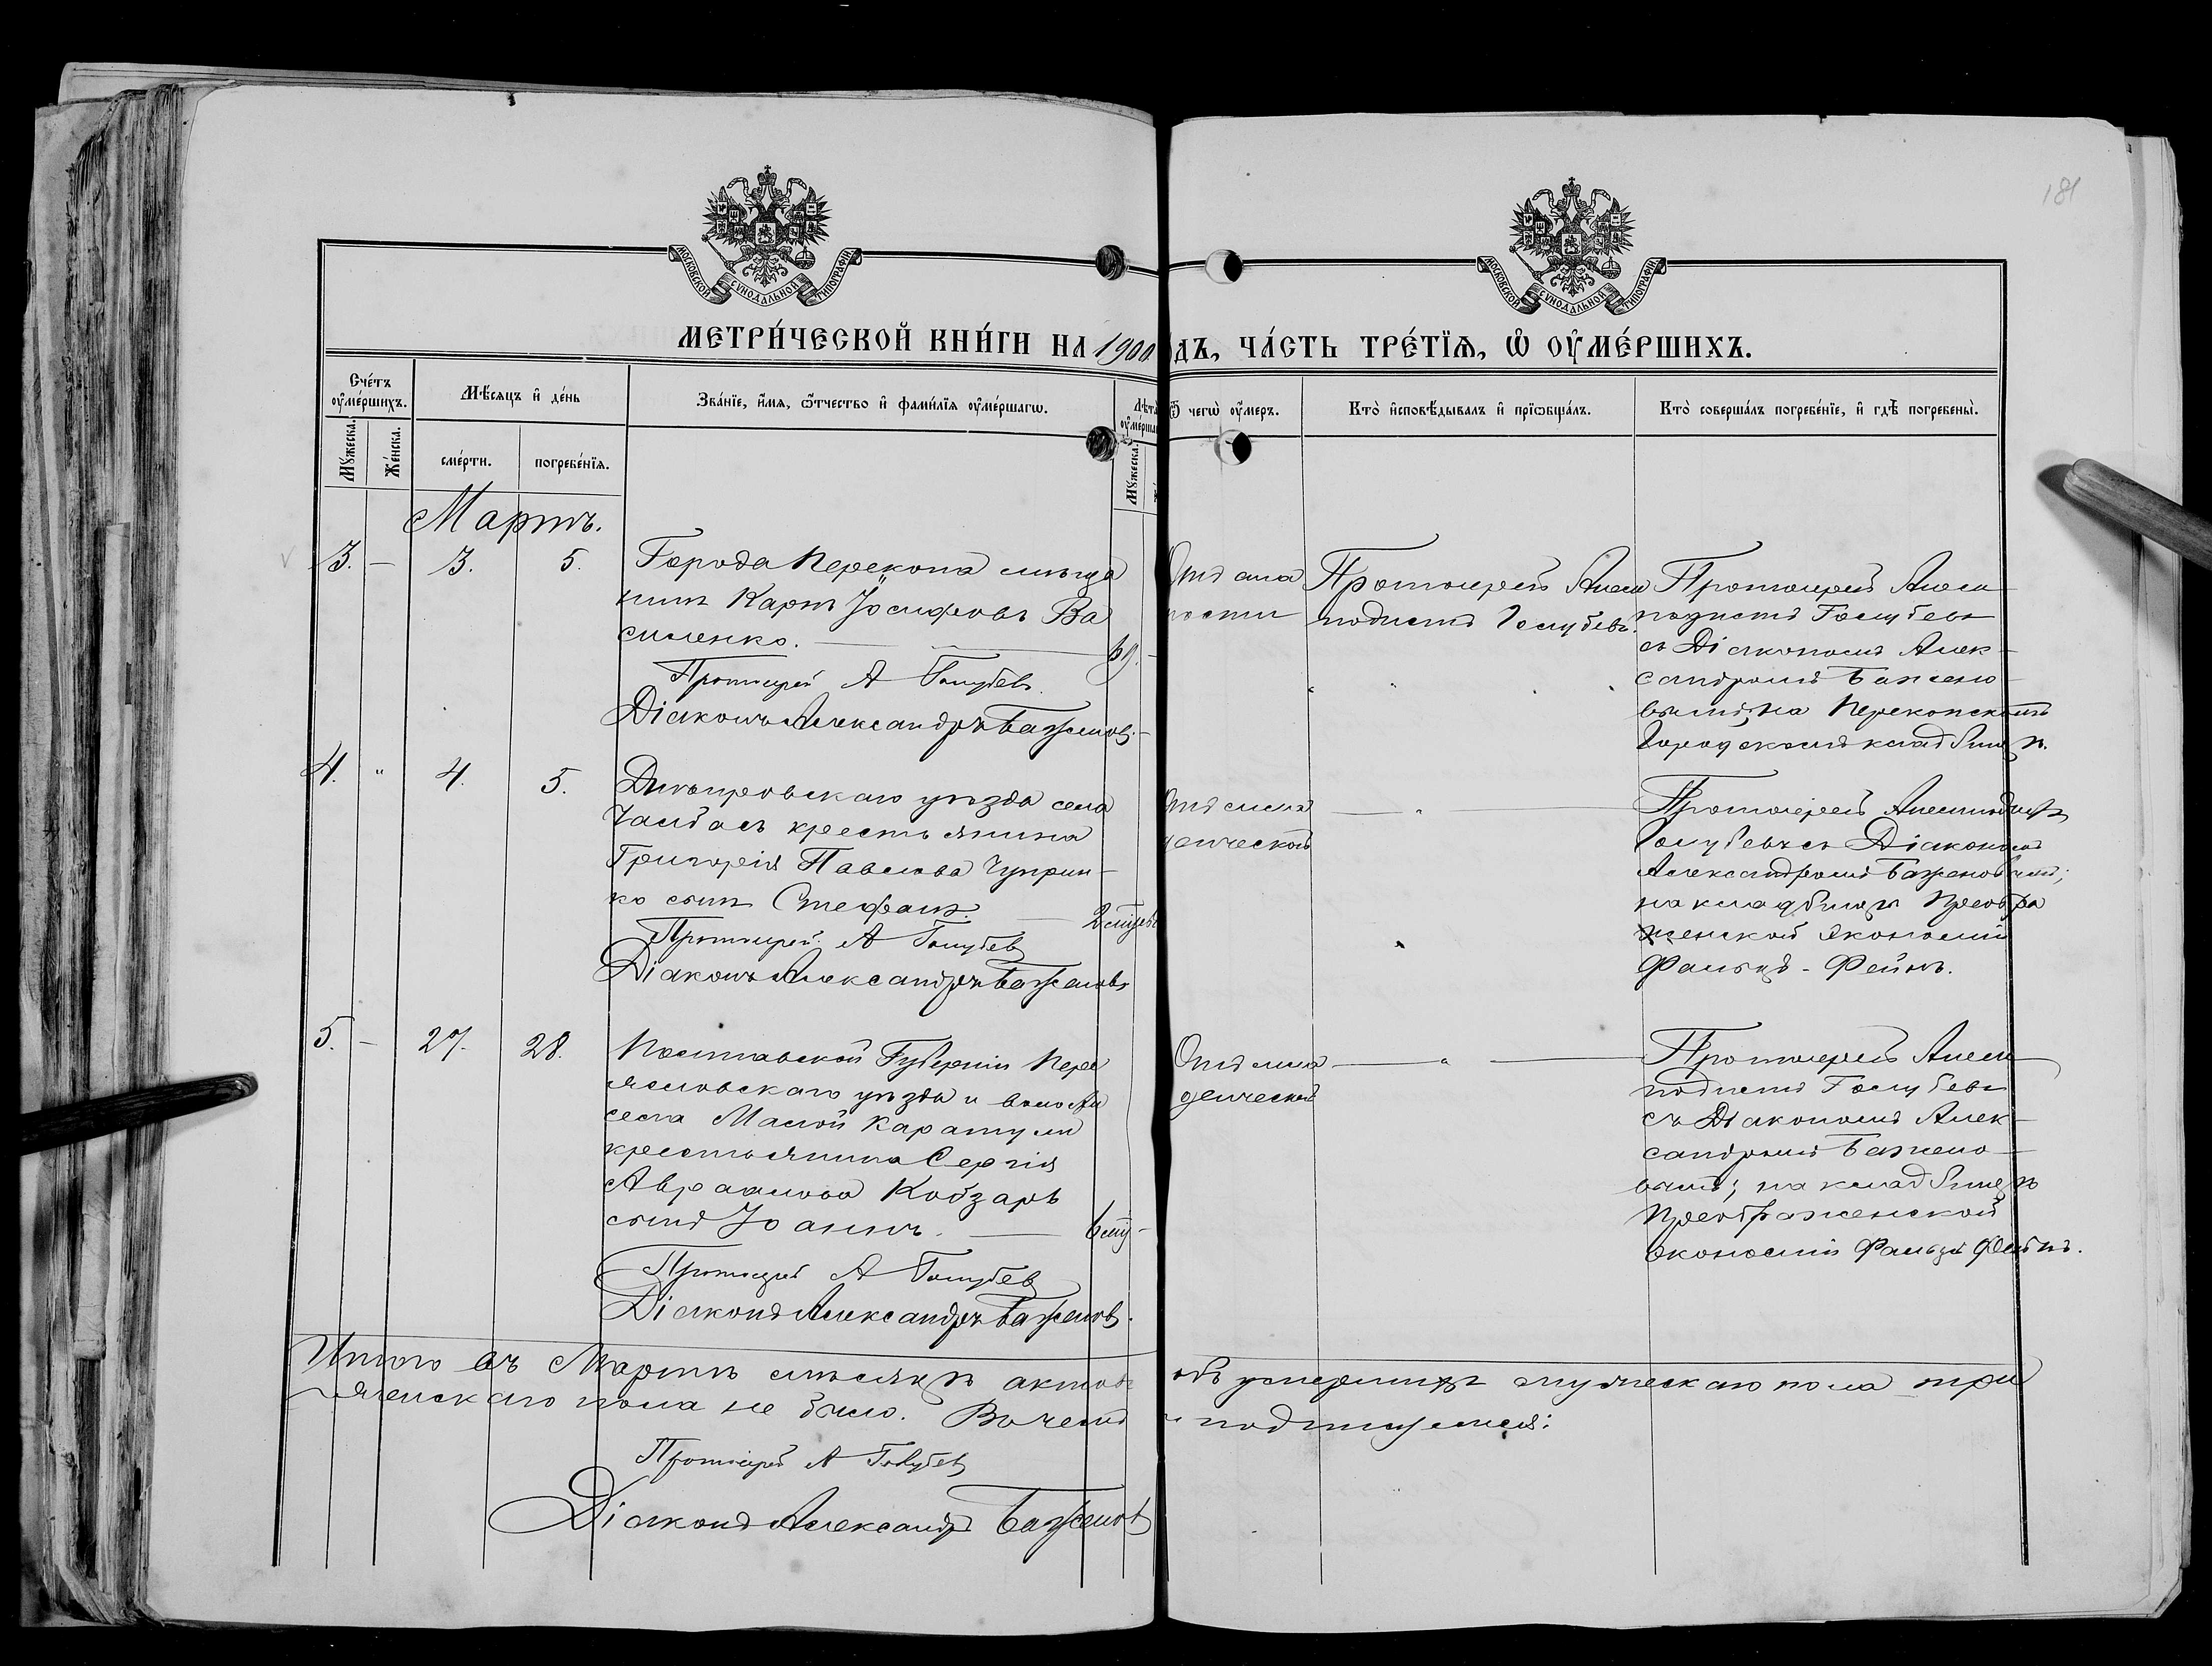 181
МОСКОВСКОЙ СѴНОДАЛЬНОЙ ТИПОГРАФІИ
МОСКОВСКОЙ СѴНОДАЛЬНОЙ ТИПОГРАФІИ
МЕТРИ́ЧЕСКОЙ КНИ́ГИ НА 1900
ДЪ, ЧА́СТЬ ТРЕ́ТЇѦ, Ѡ҆ ОУ҆МЕ́РШИХЪ.
Сче́тъ оу҆ме́ршихъ.
Мꙋ́жеска.
Же́нска.
Мѣ́сѧцъ и҆ де́нь
сме́рти.
погребе́нїѧ.
Зва́нїе, и҆́мѧ, ѻ҆́тчество и҆ фами́лїѧ оу҆ме́ршагѡ.
Лѣта
оу҆ме́рша
Мꙋ́жеска.
Ѿ чегѡ̀ оу҆́меръ.
Кто̀ и҆сповѣ́дывалъ и҆ прїѡбща́лъ.
Кто̀ соверша́лъ погребе́нїе, и҆ гдѣ̀ погребены̀.
Мартъ.
3. — 3. 5.
Города Перекопа мѣща
нинъ Карпъ Іосифовъ Ва
силенко. — 69. —
Протоіерей А Голубевъ.
Діаконъ Александръ Баженовъ.
Отъ сла
ности
Протоіерей Анем
подистъ Голубевъ.
Протоіерей Анем
подистъ Голубевъ
съ Діакономъ Алек-
сандромъ Бажено-
вымъ; на Перекопскомъ
Городскомъ кладбищѣ.
4. " 4. 5.
Днѣпровскаго уѣзда села
Чалбасъ крестьянина
Григорія Павлова Чуприн-
ко сынъ Стефанъ. — 2
Протоіерей А Голубевъ
Діаконъ Александръ Баженовъ
Отъ мла
денческой
— " —
Протоіерей Анемподистъ
Голубевъ съ Діакономъ
Александромъ Баженовымъ;
на кладбищѣ Преобра
женской экономіи
Фальцъ-Фейнъ.
5. — 27. 28.
Полтавской Губерніи Пере
яславскаго уѣзда и волости
села Малой Каратули
крестьянина Сергія
Авраамова Кобзарь
сынъ Іоаннъ. — 6
Протоіерей А Голубевъ
Діаконъ Александръ Баженовъ.
Отъ мла
денческой
— " —
Протоіерей Анем
подистъ Голубевъ
съ Діакономъ Алек-
сандромъ Бажено-
вымъ; на кладбищѣ
Преображенской
экономіи Фальцъ Фейнъ.
Итого въ Мартѣ мѣсяцѣ актовъ объ умершихъ мужескаго пола три
женскаго пола не было. Въ чемъ и подпишемся:
Протоіерей А Голубевъ
Діаконъ Александръ Баженовъ